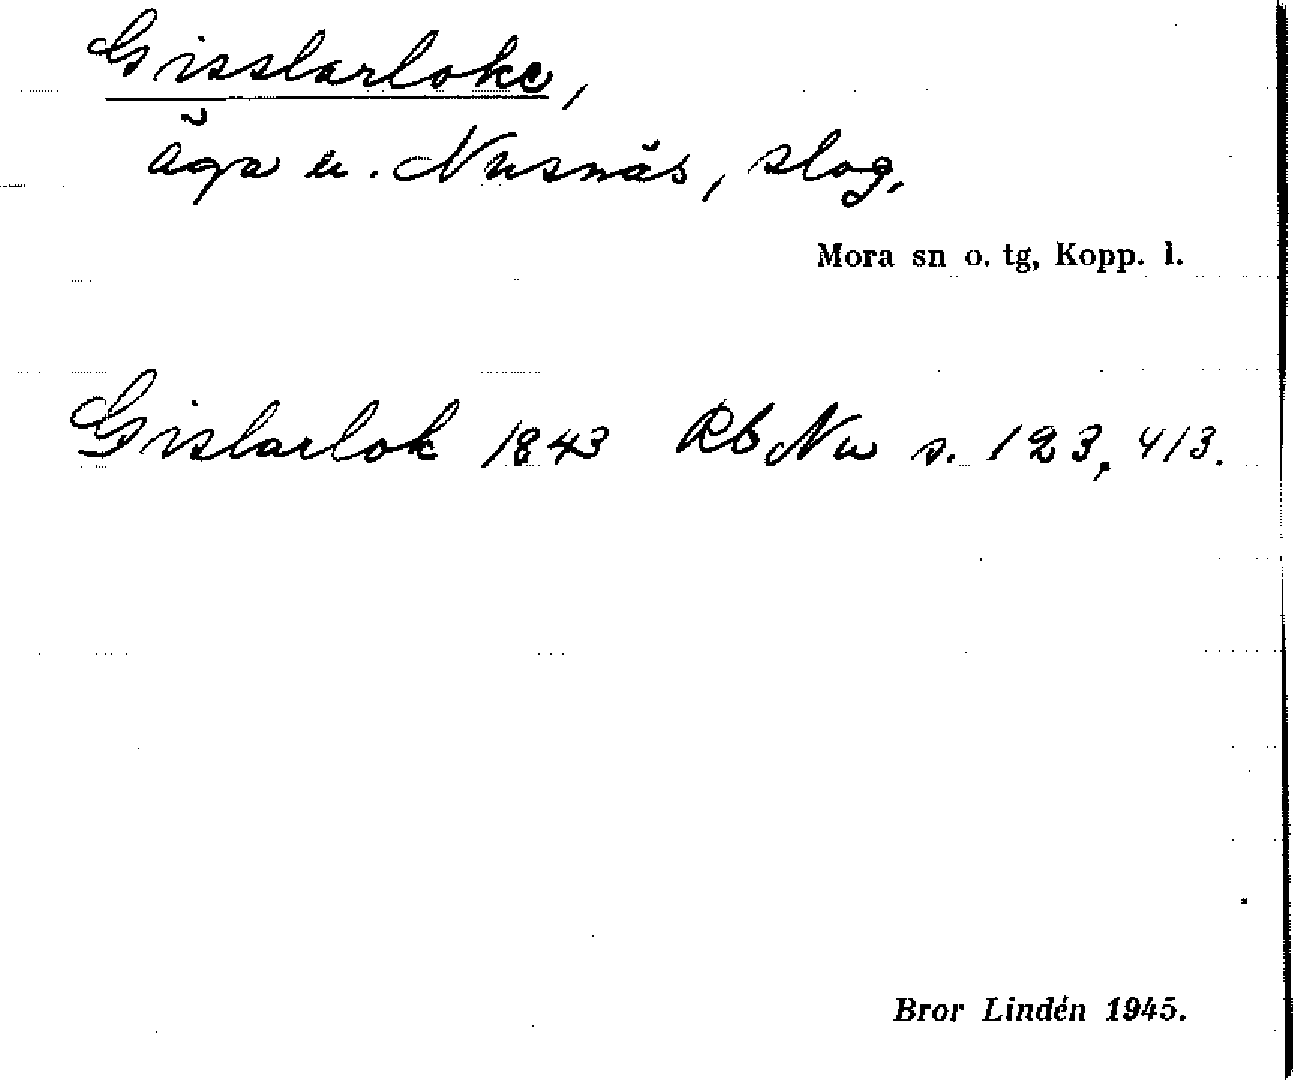 Gisslarloke,
äga u. Nusnäs, slog,
Mora sn o. tg, Kopp. l.
Gislarlok 1843 Rb Nu s. 123, 413.
Bror Lindén 1945.